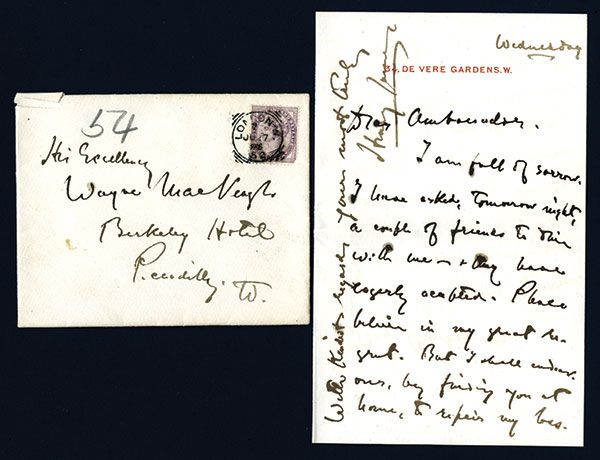 54
His Excellency
Wayne MacVeagh
Berkeley Hotel
Piccadilly. W.
LONDON
Wednesday
34, DE VERE GARDENS. W.
Dear Ambassador.
I am full of sorrow.
I have asked, tomorrow night,
a couple of friends to dine
with me — & they have
eagerly accepted. Please
believe in my great re-
gret. But I shall endeav-
our, by finding you at
home, to repair my loss.
With kindest regards yours most truly
Henry James